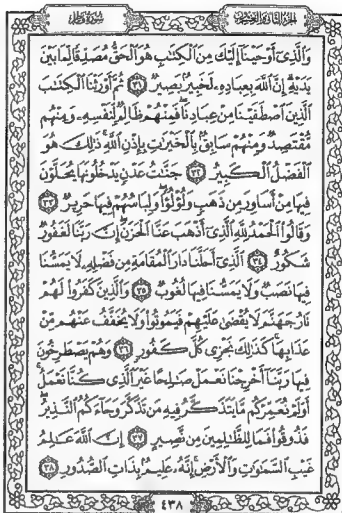 الجزء الثاني والعشرون
سورة فاطر
وَالَّذِي أَوْحَيْنَا إِلَيْكَ مِنَ الْكِتَابِ هُوَ الْحَقُّ مُصَدِّقًا لِّمَا بَيْنَ
يَدَيْهِ إِنَّ اللَّهَ بِعِبَادِهِ لَخَبِيرٌ بَصِيرٌ ٣١ ثُمَّ أَوْرَثْنَا الْكِتَابَ
الَّذِينَ اصْطَفَيْنَا مِنْ عِبَادِنَا فَمِنْهُمْ ظَالِمٌ لِّنَفْسِهِ وَمِنْهُم
مُّقْتَصِدٌ وَمِنْهُمْ سَابِقٌ بِالْخَيْرَاتِ بِإِذْنِ اللَّهِ ذَٰلِكَ هُوَ
الْفَضْلُ الْكَبِيرُ ٣٢ جَنَّاتُ عَدْنٍ يَدْخُلُونَهَا يُحَلَّوْنَ
فِيهَا مِنْ أَسَاوِرَ مِن ذَهَبٍ وَلُؤْلُؤًا وَلِبَاسُهُمْ فِيهَا حَرِيرٌ ٣٣
وَقَالُوا الْحَمْدُ لِلَّهِ الَّذِي أَذْهَبَ عَنَّا الْحَزَنَ إِنَّ رَبَّنَا لَغَفُورٌ
شَكُورٌ ٣٤ الَّذِي أَحَلَّنَا دَارَ الْمُقَامَةِ مِن فَضْلِهِ لَا يَمَسُّنَا
فِيهَا نَصَبٌ وَلَا يَمَسُّنَا فِيهَا لُغُوبٌ ٣٥ وَالَّذِينَ كَفَرُوا لَهُمْ
نَارُ جَهَنَّمَ لَا يُقْضَىٰ عَلَيْهِمْ فَيَمُوتُوا وَلَا يُخَفَّفُ عَنْهُم مِّنْ
عَذَابِهَا كَذَٰلِكَ نَجْزِي كُلَّ كَفُورٍ ٣٦ وَهُمْ يَصْطَرِخُونَ
فِيهَا رَبَّنَا أَخْرِجْنَا نَعْمَلْ صَالِحًا غَيْرَ الَّذِي كُنَّا نَعْمَلُ
أَوَلَمْ نُعَمِّرْكُم مَّا يَتَذَكَّرُ فِيهِ مَن تَذَكَّرَ وَجَاءَكُمُ النَّذِيرُ
فَذُوقُوا فَمَا لِلظَّالِمِينَ مِن نَّصِيرٍ ٣٧ إِنَّ اللَّهَ عَالِمُ
غَيْبِ السَّمَاوَاتِ وَالْأَرْضِ إِنَّهُ عَلِيمٌ بِذَاتِ الصُّدُورِ ٣٨
٤٣٨